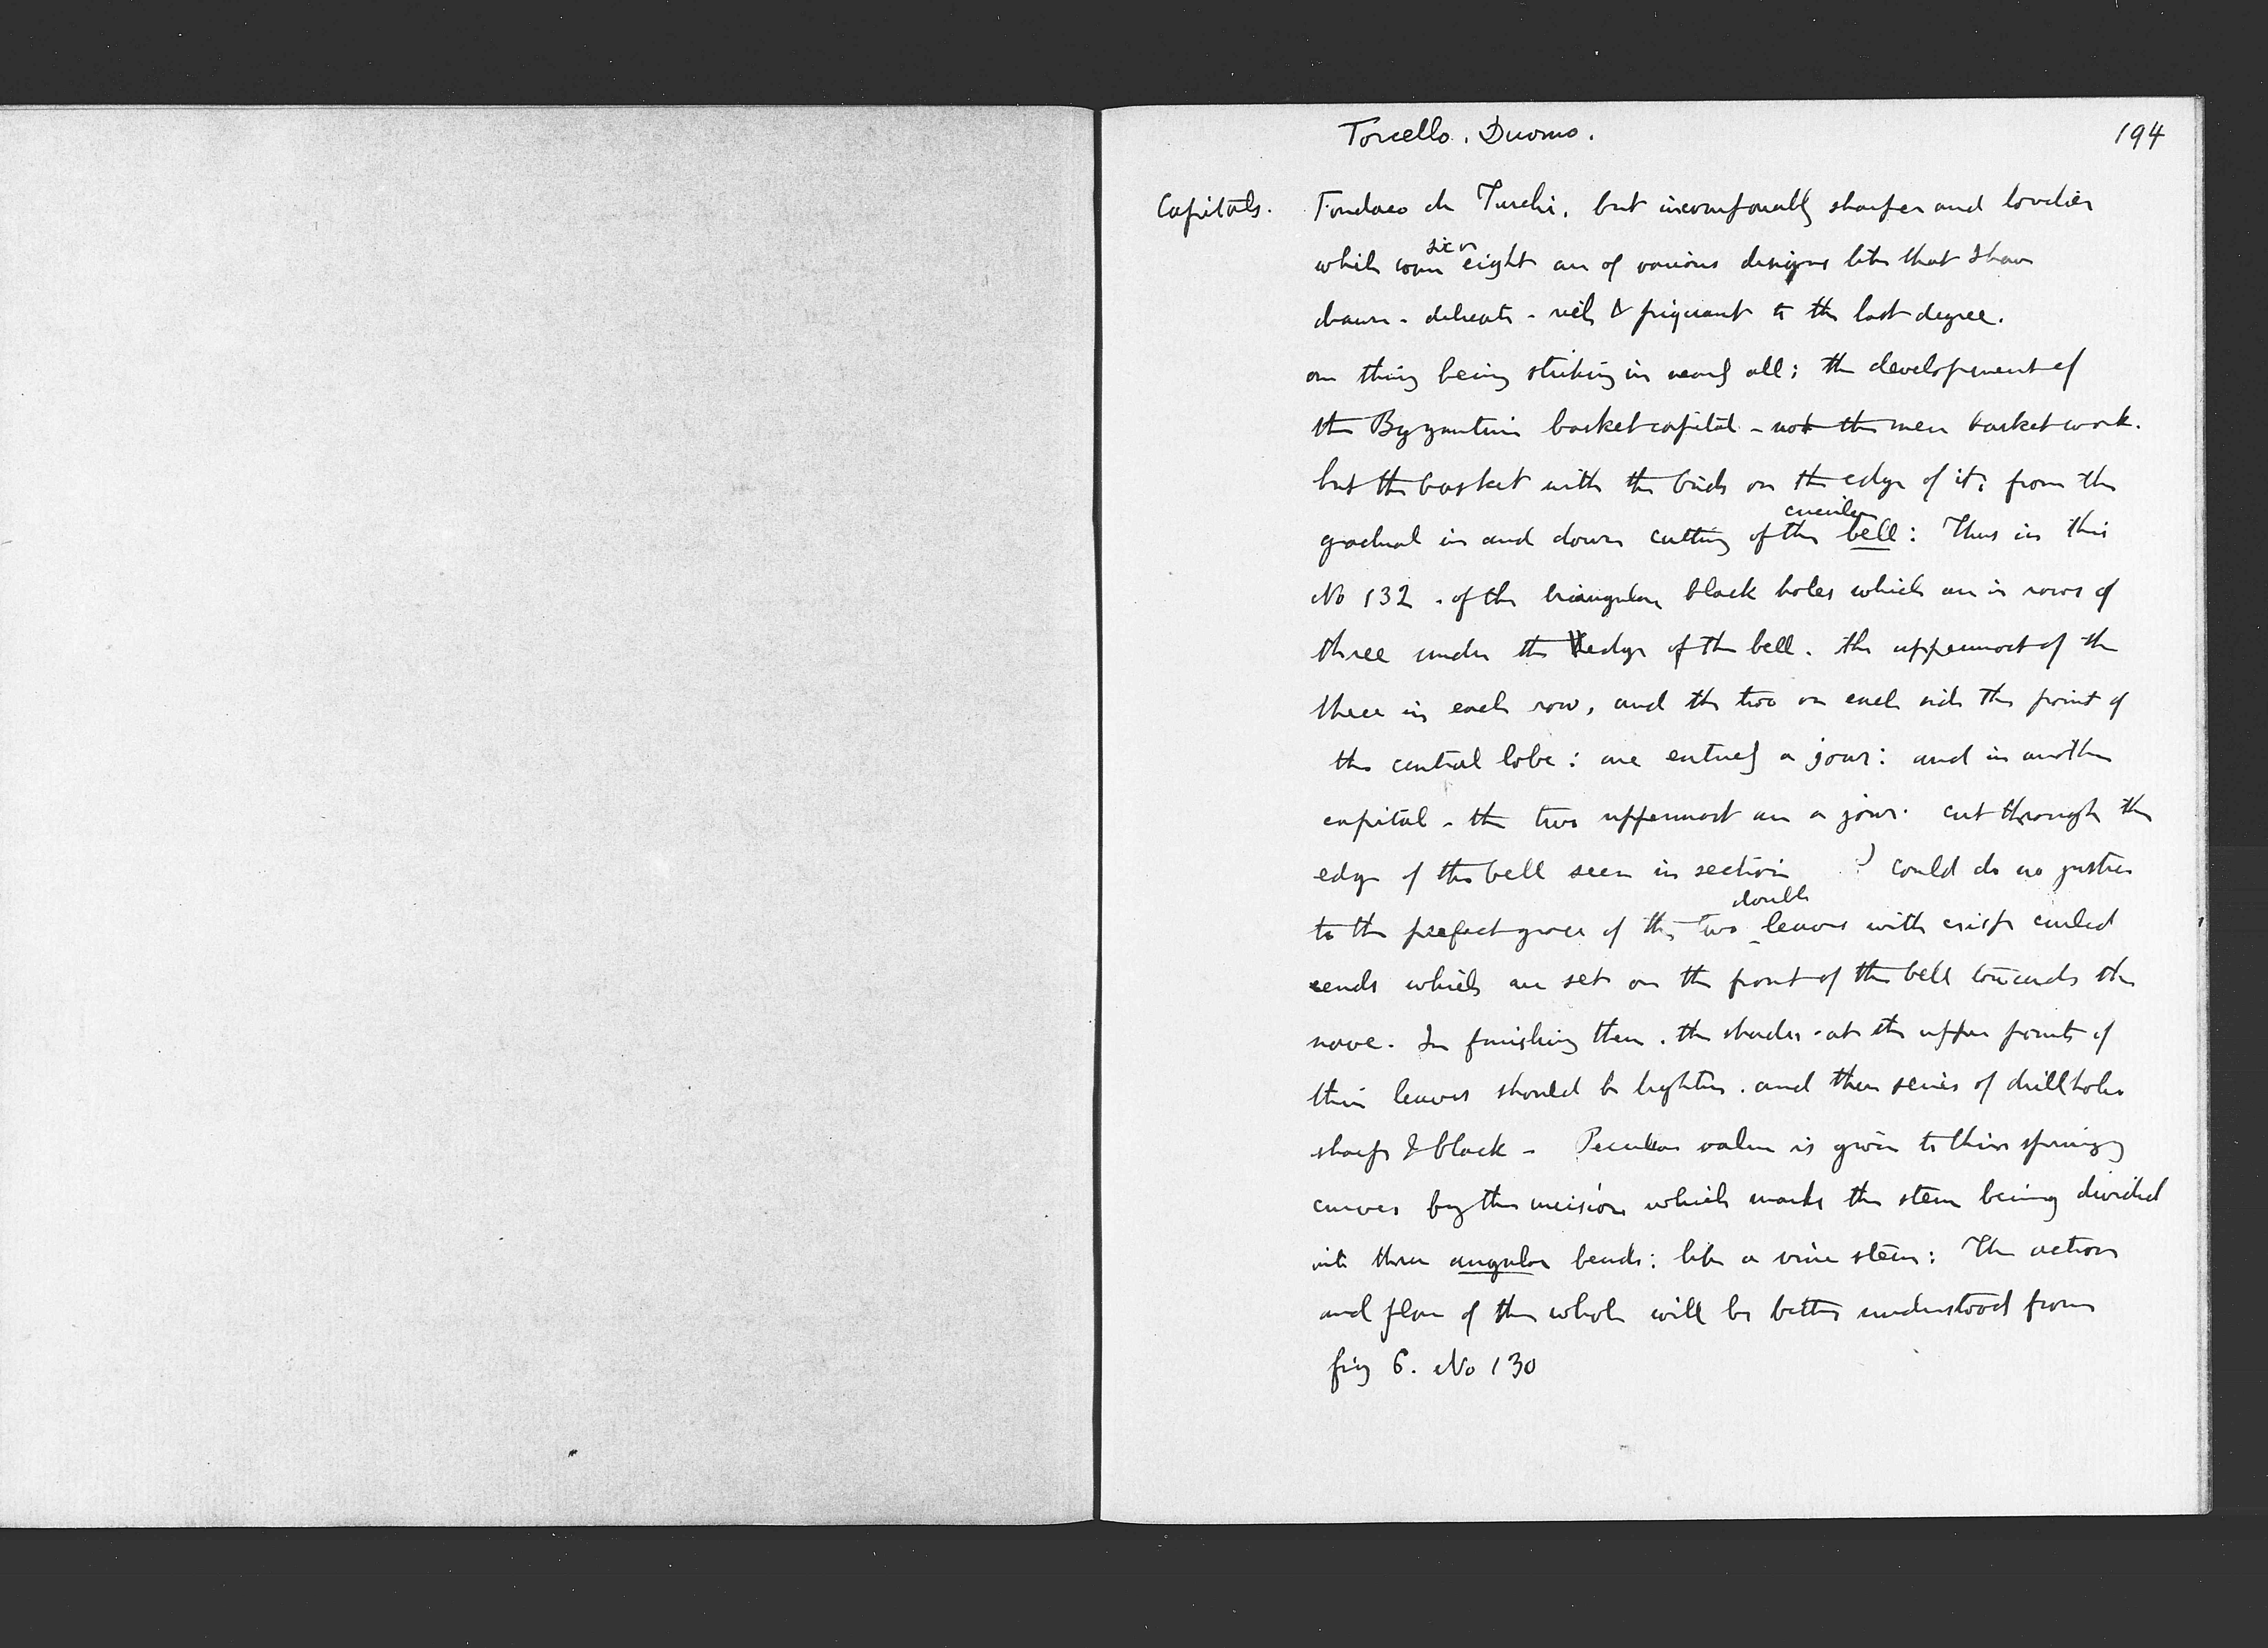 Torcello. Duomo.
194
Capitals.
Fondaco de Turchi, but incomparably sharper and lovelier
six or
while some eight are of various designs like that I have
drawn - delicate - rich & piquant to the last degree.
one thing being striking in nearly all; the development of
the Byzantine basket capital - not the mere basket work.
but the basket with the birds on the edge of it; from the
circular
gradual in and down cutting of the bell: Thus in this
No 132 . of the triangular black holes which are in rows of
three under the edge of the bell. the uppermost of the
three in each row, and the two on each side the point of
the central lobe: are entirely a jour: and in another
capital - the two uppermost are a jour. cut through the
edge of the bell seen in section I could do no justice
double
to the perfect grace of the two leaves with crisp curled
ends which are set on the front of the bell towards the
nave. In finishing them . the shades - at the upper points of
their leaves should be lighter . and their series of drillholes
sharp & black - Peculiar value is given to their springing
curves by the incision which marks the stem being divided
into three angular beads: like a vine stem: The action
and plan of the whole will be better understood from
fig 6. No 130